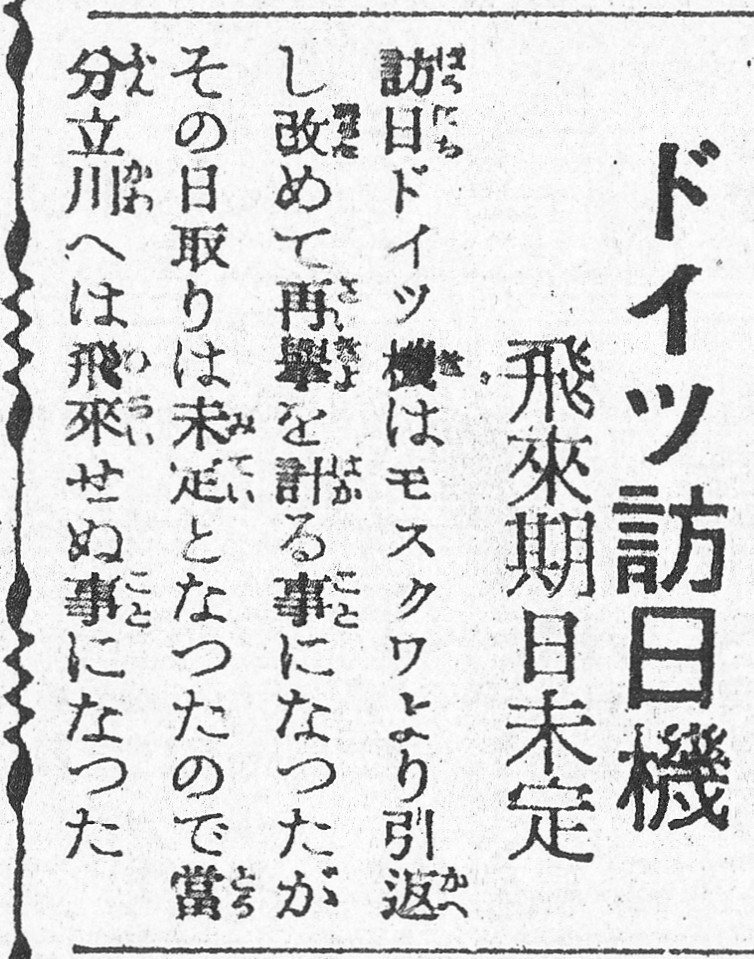 ドイツ訪日機
飛來期日未定
訪日ドイツ機はモスクワより引返
し改めて再擧を計る事になつたが
その日取りは未定となつたので當
分立川へは飛來せぬ事になつた